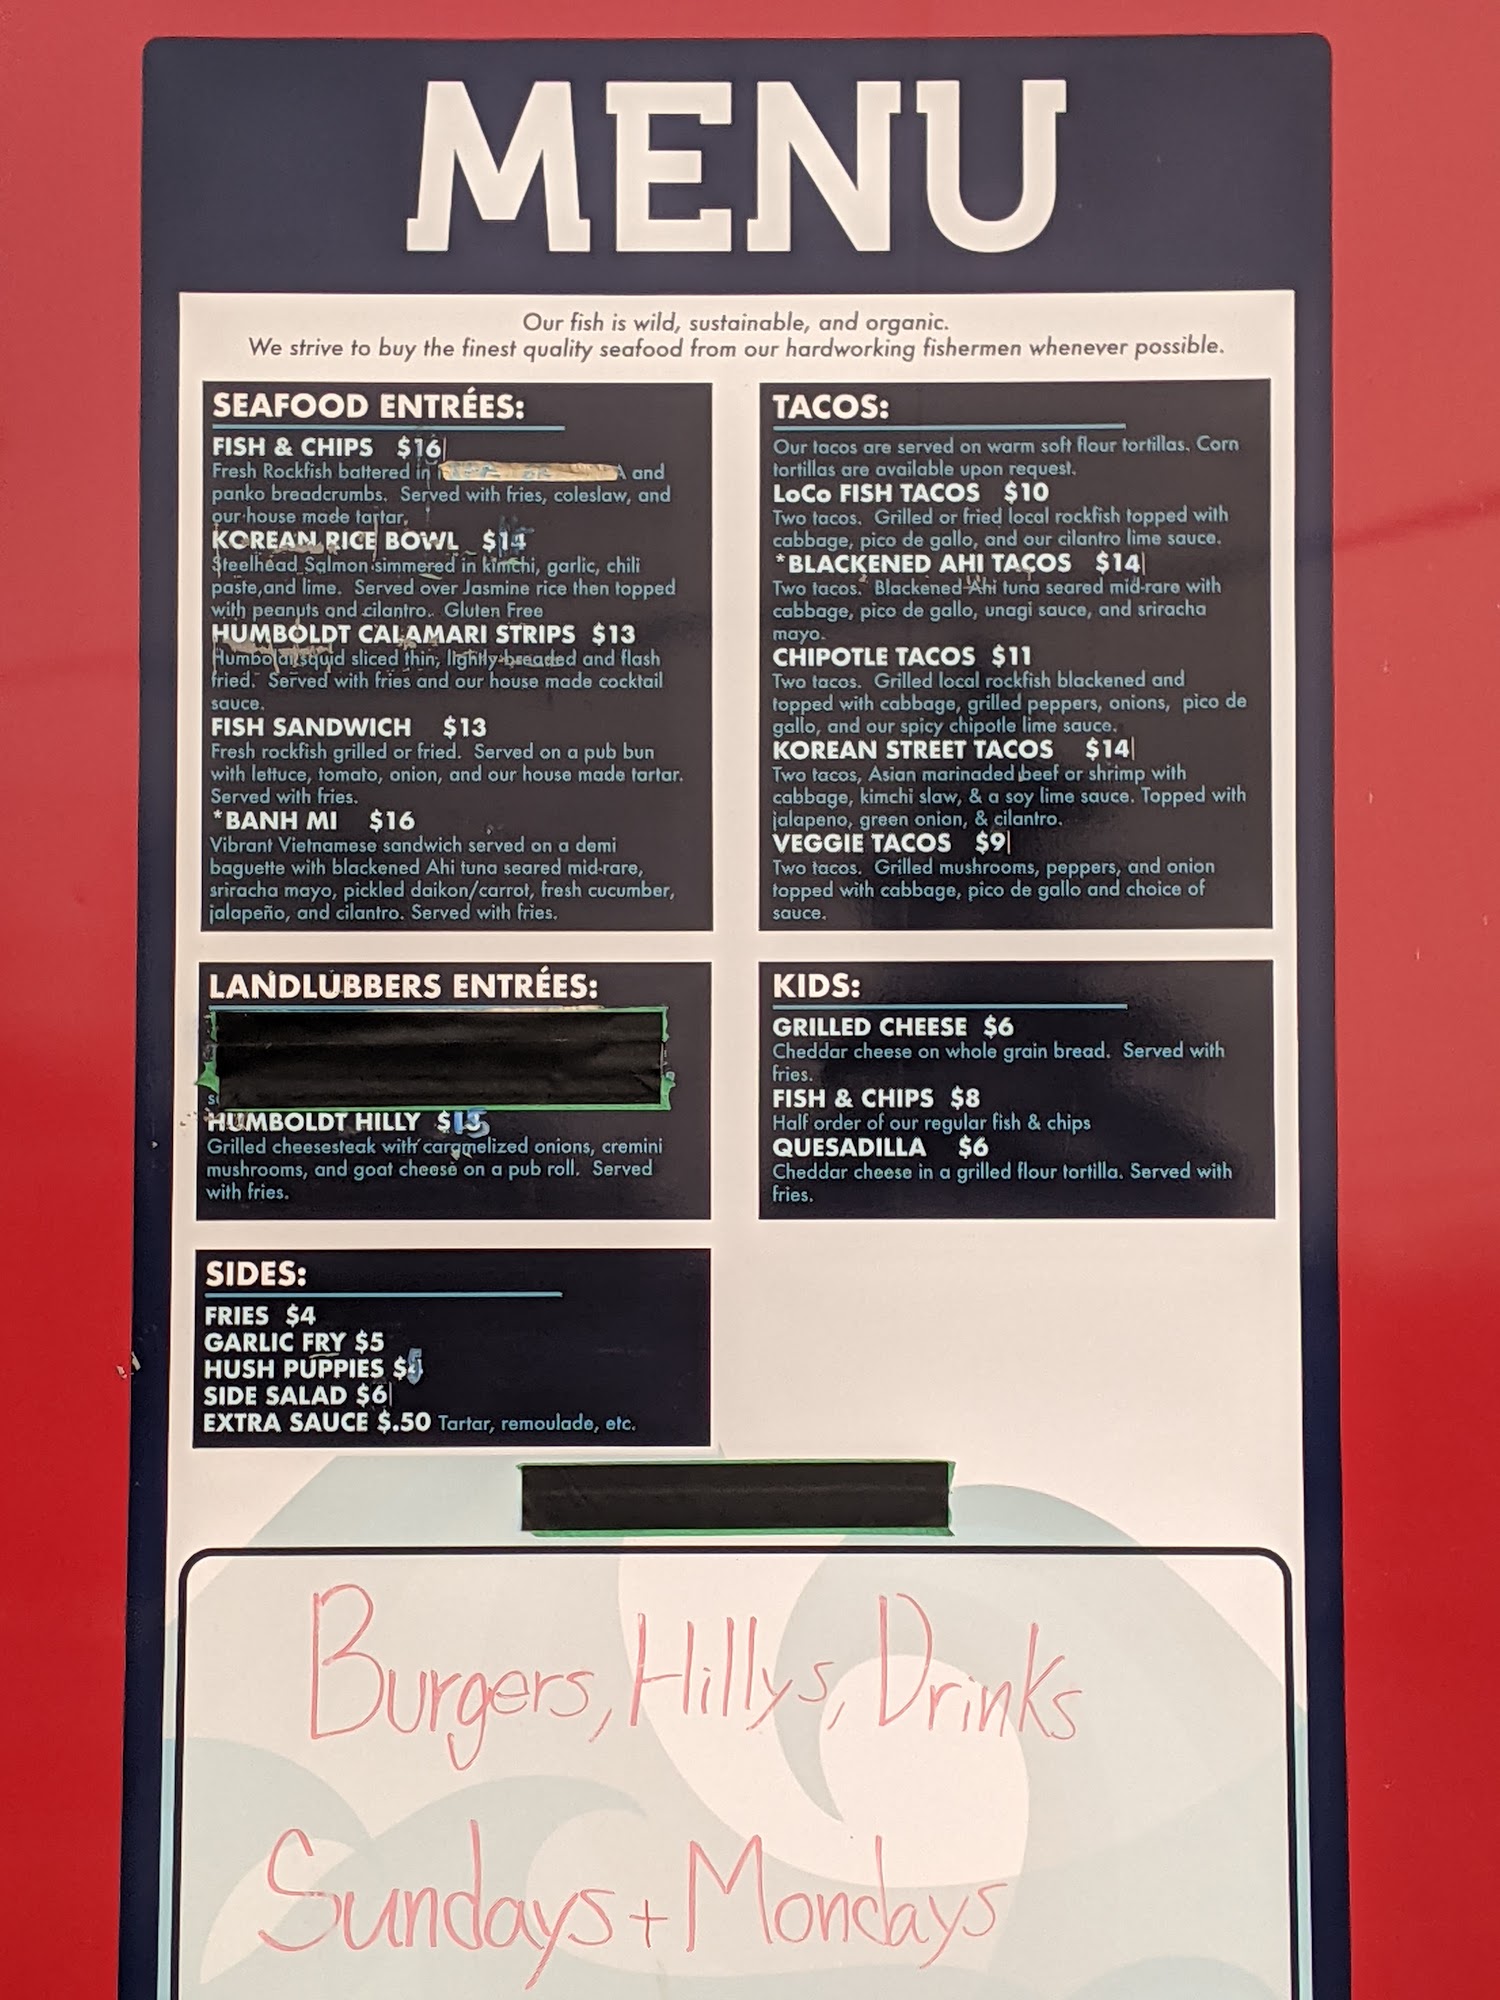 MENU
Our fish is wild, sustainable, and organic.
We strive to buy the finest quality seafood from our hardworking fishermen whenever possible.
SEAFOOD ENTRÉES:
FISH & CHIPS $16
Fresh Rockfish battered in and
panko breadcrumbs. Served with fries, coleslaw, and
our house made tartar.
KOREAN RICE BOWL
Steelhead Salmon simmered in kimchi, garlic, chili
paste,and lime. Served over Jasmine rice then topped
with peanuts and cilantro. Gluten Free
HUMBOLDT CALAMARI STRIPS $13
squid sliced thin, lightly breaded and flash
fried. Served with fries and our house made cocktail
sauce.
FISH SANDWICH $13
Fresh rockfish grilled or fried. Served on a pub bun
with lettuce, tomato, onion, and our house made tartar.
Served with fries.
*BANH MI $16
Vibrant Vietnamese sandwich served on a demi
baguette with blackened Ahi tuna seared mid-rare,
sriracha mayo, pickled daikon/carrot, fresh cucumber,
jalapeño, and cilantro. Served with fries.
TACOS:
Our tacos are served on warm soft flour tortillas. Corn
tortillas are available upon request.
LoCo FISH TACOS $10
Two tacos. Grilled or fried local rockfish topped with
cabbage, pico de gallo, and our cilantro lime sauce.
*BLACKENED AHI TACOS $14
Two tacos. Blackened Ahi tuna seared mid-rare with
cabbage, pico de gallo, unagi sauce, and sriracha
mayo.
CHIPOTLE TACOS $11
Two tacos. Grilled local rockfish blackened and
topped with cabbage, grilled peppers, onions, pico de
gallo, and our spicy chipotle lime sauce.
KOREAN STREET TACOS $14
Two tacos, Asian marinaded beef or shrimp with
cabbage, kimchi slaw, & a soy lime sauce. Topped with
jalapeno, green onion, & cilantro.
VEGGIE TACOS $9
Two tacos. Grilled mushrooms, peppers, and onion
topped with cabbage, pico de gallo and choice of
sauce.
LANDLUBBERS ENTRÉES:
HUMBOLDT HILLY $15
Grilled cheesesteak with caramelized onions, cremini
mushrooms, and goat cheese on a pub roll. Served
with fries.
KIDS:
GRILLED CHEESE $6
Cheddar cheese on whole grain bread. Served with
fries.
FISH & CHIPS $8
Half order of our regular fish & chips
QUESADILLA $6
Cheddar cheese in a grilled flour tortilla. Served with
fries.
SIDES:
FRIES $4
GARLIC FRY $5
HUSH PUPPIES $5
SIDE SALAD $6
EXTRA SAUCE $.50 Tartar, remoulade, etc.
Burgers, Hillys, Drinks
Sundays + Mondays